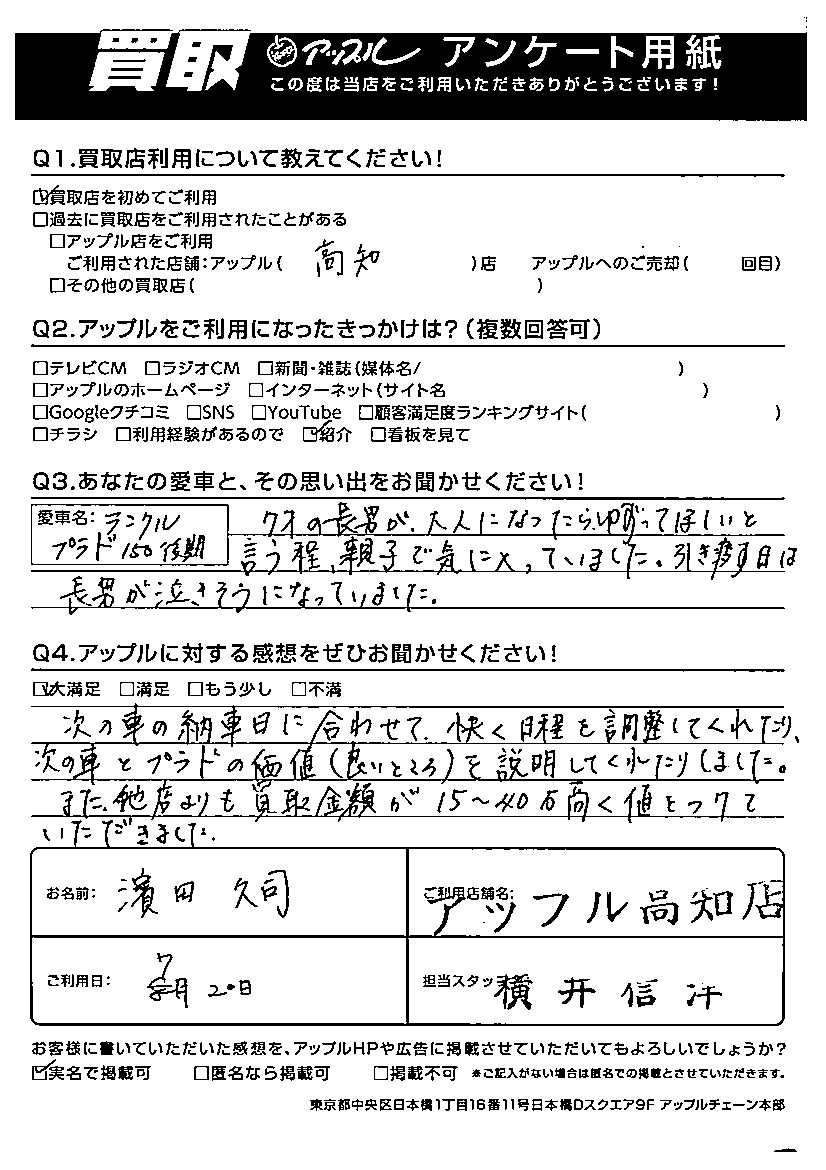 買取 アップル アンケート用紙
この度は当店をご利用いただきありがとうございます!
Q1.買取店利用について教えてください!
☑買取店を初めてご利用
□過去に買取店をご利用されたことがある
□アップル店をご利用
ご利用された店舗:アップル( 高知 )店 アップルへのご売却( 回目)
□その他の買取店( )
Q2.アップルをご利用になったきっかけは?(複数回答可)
□テレビCM □ラジオCM □新聞・雑誌(媒体名/ )
□アップルのホームページ □インターネット(サイト名 )
□Googleクチコミ □SNS □YouTube □顧客満足度ランキングサイト( )
□チラシ □利用経験があるので ☑紹介 □看板を見て
Q3.あなたの愛車と、その思い出をお聞かせください!
愛車名:ランクル
プラド150後期
7才の長男が、大人になったらゆずってほしいと
言う程、親子で気に入っていました。引き渡す日は
長男が泣きそうになっていました。
Q4.アップルに対する感想をぜひお聞かせください!
☑大満足 □満足 □もう少し □不満
次の車の納車日に合わせて、快く日程を調整してくれたり、
次の車とプラドの価値(良いところ)を説明してくれたりしました。
また、他店よりも買取金額が15~40万高く値をつけて
いただきました。
お名前: 濱田 久司
ご利用店舗名:
アップル高知店
ご利用日: 7月20日
担当スタッフ 横井 信洋
お客様に書いていただいた感想を、アップルHPや広告に掲載させていただいてもよろしいでしょうか?
☑実名で掲載可 □匿名なら掲載可 □掲載不可 ※ご記入がない場合は匿名での掲載とさせていただきます。
東京都中央区日本橋1丁目16番11号日本橋Dスクエア9F アップルチェーン本部